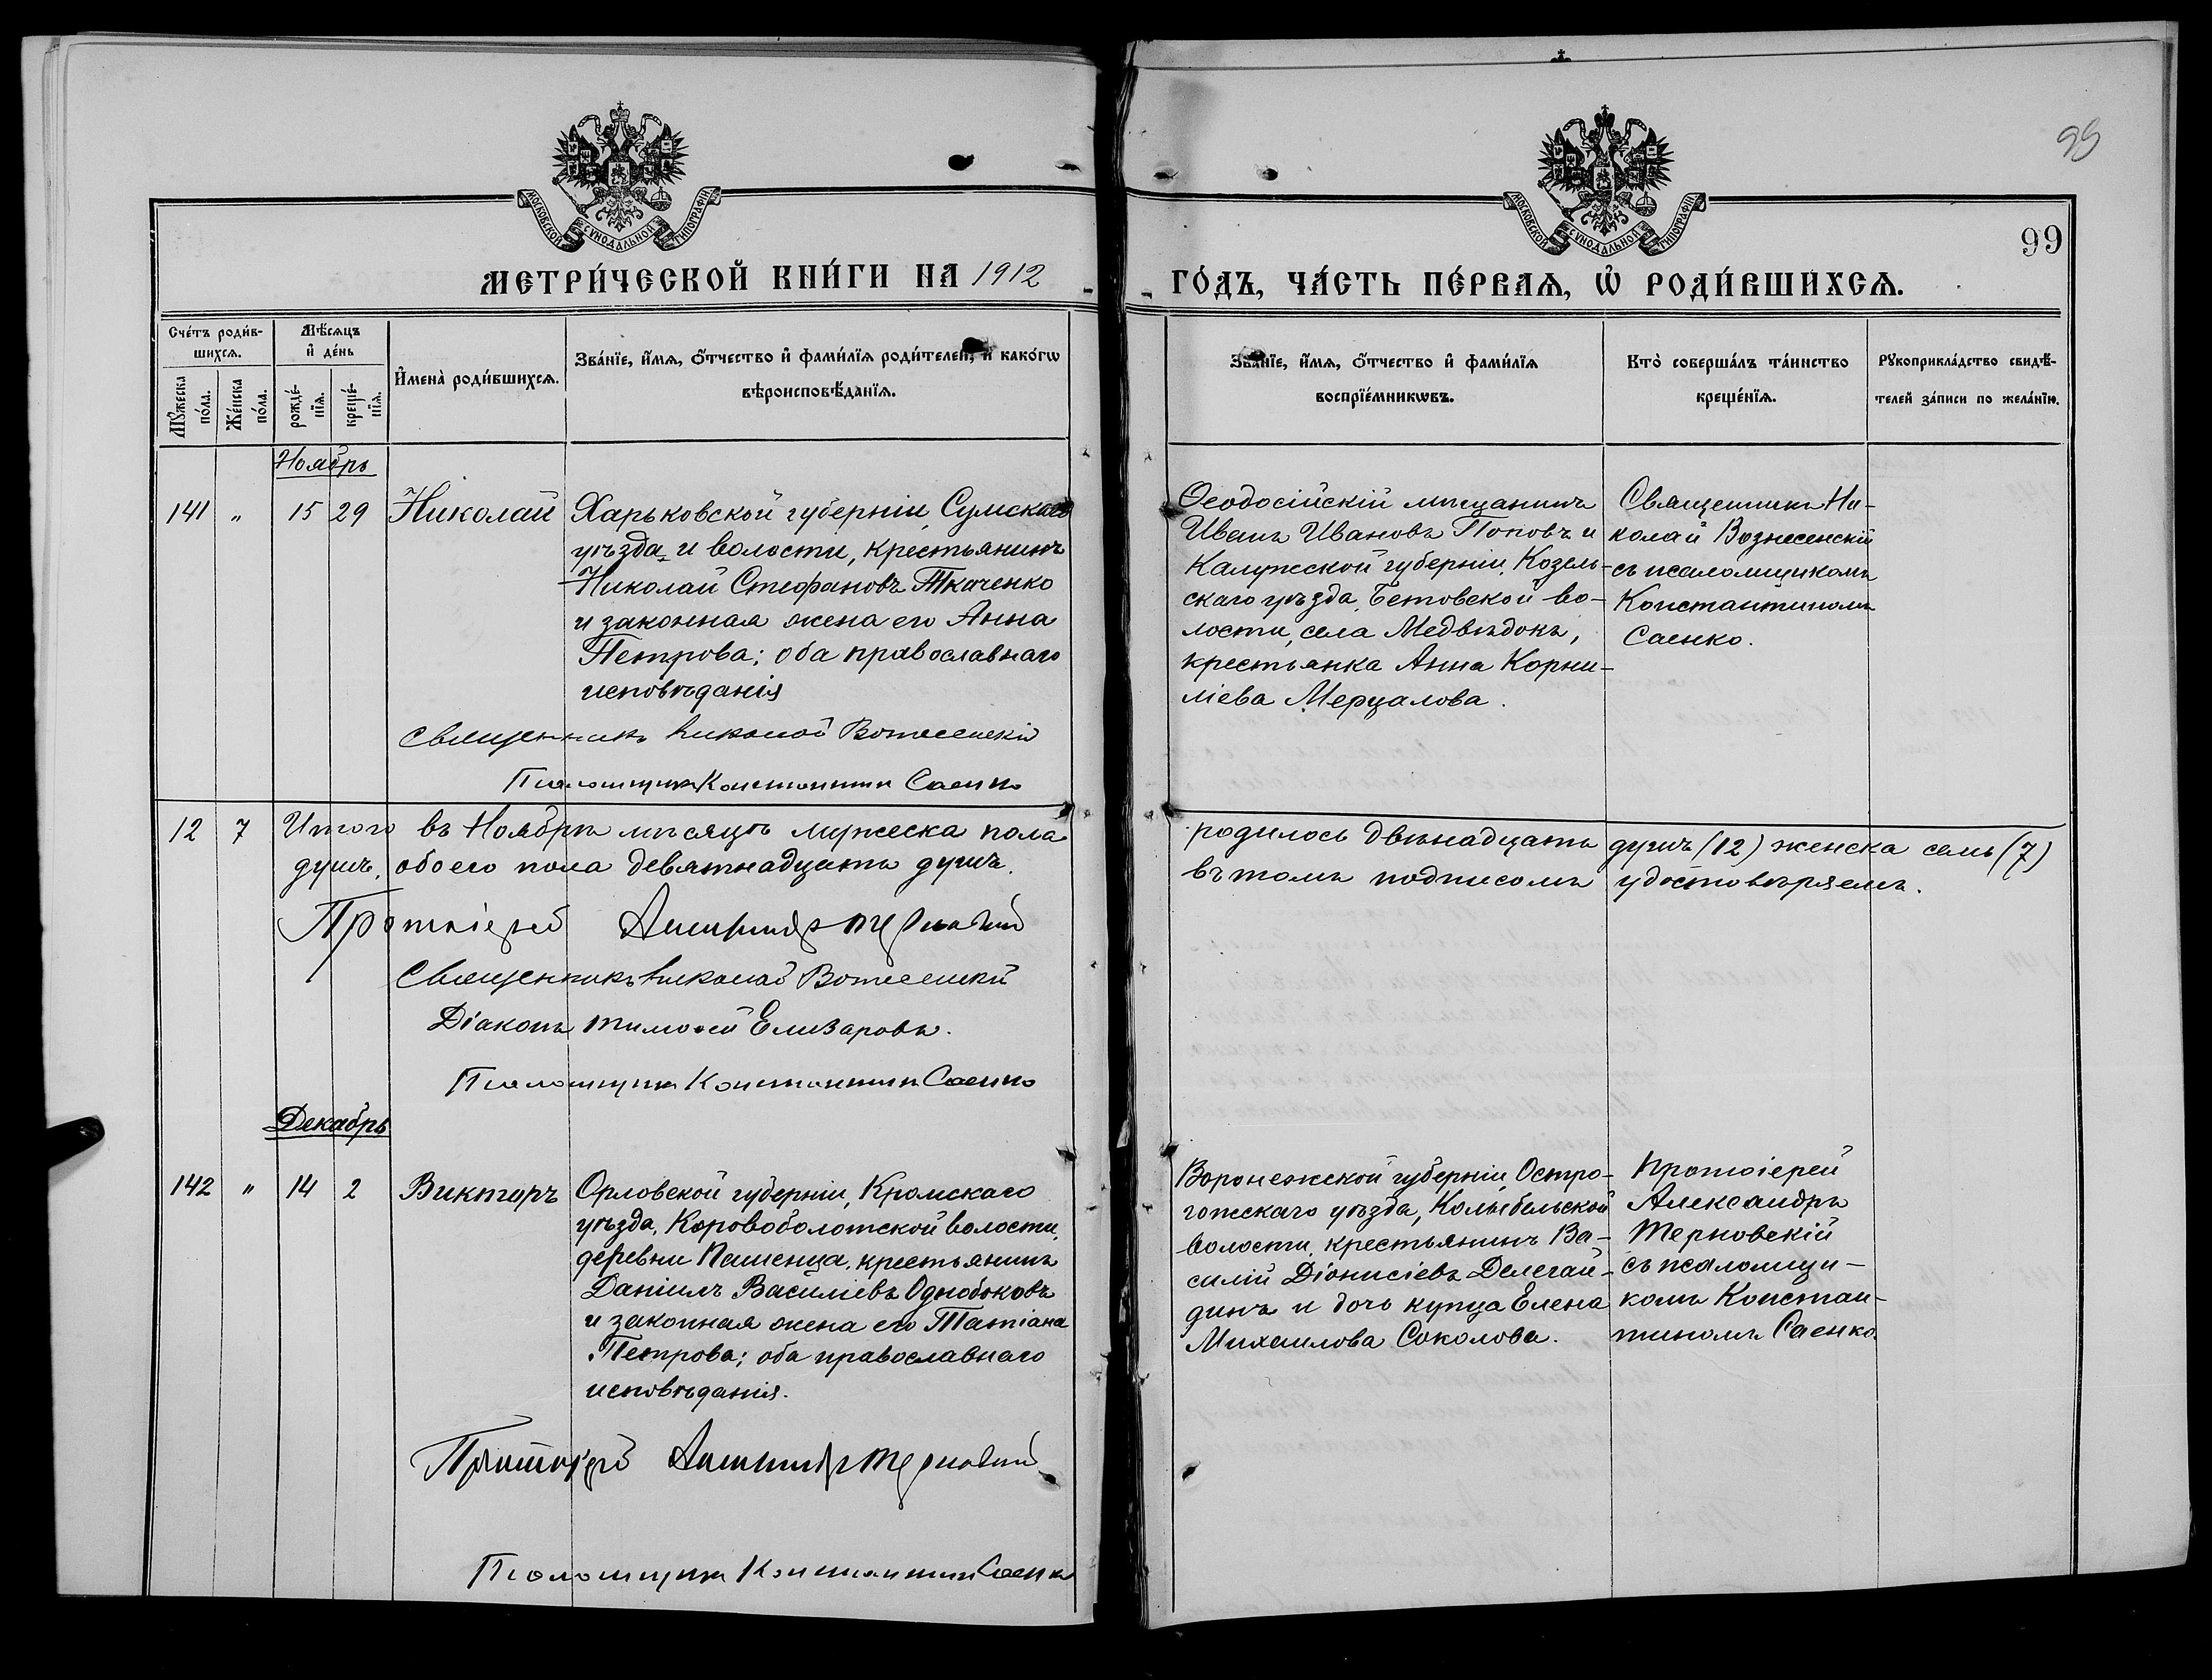 99
МОСКОВСКОЙ СУНОДАЛЬНОЙ ТИПОГРАФІИ
МОСКОВСКОЙ СУНОДАЛЬНОЙ ТИПОГРАФІИ
99
МЕТРИ́ЧЕСКОЙ КНИ́ГИ НА 1912
ГО́ДЪ, ЧА́СТЬ ПЕ́РВАѦ, Ѽ РОДИ́ВШИХСѦ.
Сче́тъ роди́в-
шихсѧ.
Мꙋ́жеска
по́ла.
Же́нска
по́ла.
Мѣ́сѧцъ
и҆ де́нь
рожде́-
нїѧ.
креще́-
нїѧ.
И҆мена̀ роди́вшихсѧ.
Зва́нїе, и҆́мѧ, ѻ҆́тчество и҆ фами́лїѧ роди́телей, и҆ како́гѡ
вѣроисповѣ́данїѧ.
Зва́нїе, и҆́мѧ, ѻ҆́тчество и҆ фами́лїѧ
воспрїе́мникѡвъ.
Кто̀ соверша́лъ та́инство
креще́нїѧ.
Рꙋкоприкла́дство свидѣ́-
телей за́писи по жела́нїю.
Ноябрь
141 „ 15 29 Николай
Харьковской губерніи, Сумскаго
уѣзда и волости, крестьянинъ
Николай Стефановъ Ткаченко
и законная жена его Анна
Петрова; оба православнаго
исповѣданія
Ѳеодосійскій мѣщанинъ
Иванъ Ивановъ Поповъ и
Калужской губерніи, Козель-
скаго уѣзда, Бетовской во-
лости, села Медвѣдокъ,
крестьянка Анна Корни-
ліева Мерцалова.
Священникъ Ни-
колай Вознесенскій
съ псаломщикомъ
Константиномъ
Саенко.
Священникъ Николай Вознесенскій
Псаломщикъ Константинъ Саенко
12 7 Итого въ Ноябрѣ мѣсяцѣ мужеска пола
родилось двѣнадцать душъ (12) женска семь (7)
душъ, обоего пола девятнадцать душъ.
въ томъ подписомъ удостовѣряемъ.
Протоіерей Александръ Терновскій
Священникъ Николай Вознесенскій
Діаконъ Тимоѳей Елизаровъ.
Псаломщикъ Константинъ Саенко
Декабрь
142 „ 14 2 Викторъ
Орловской губерніи, Кромскаго
уѣзда, Коровоболотской волости,
деревни Пашенца, крестьянинъ
Даніилъ Василіевъ Однобоковъ
и законная жена его Татіана
Петрова; оба православнаго
исповѣданія.
Воронежской губерніи, Остро-
гожскаго уѣзда, Колыбельской
волости, крестьянинъ Ва-
силій Діонисіевъ Делегай-
динъ и дочь купца Елена
Михаилова Соколова.
Протоіерей
Александръ
Терновскій
съ псаломщи-
комъ Констан-
тиномъ Саенко.
Протоіерей Александръ Терновскій
Псаломщикъ Константинъ Саенко